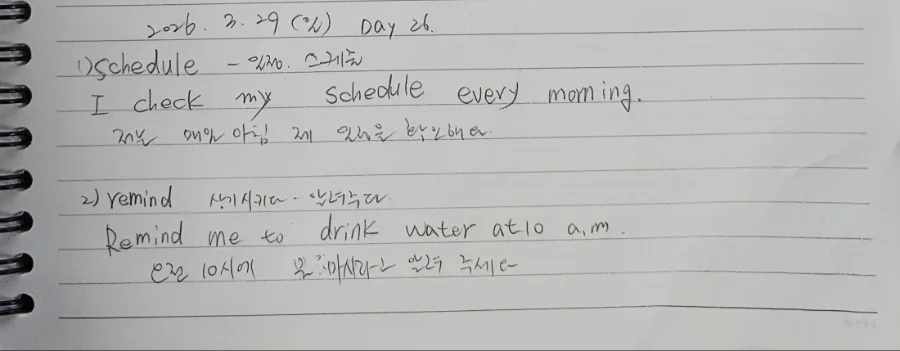 2026. 3. 29 (일) Day 26.
1) schedule - 일정. 스케줄
I check my schedule every morning.
저는 매일 아침 제 일정을 확인해요.
2) remind 상기시키다. 알려주다.
Remind me to drink water at 10 a.m.
오전 10시에 물 마시라고 알려 주세요